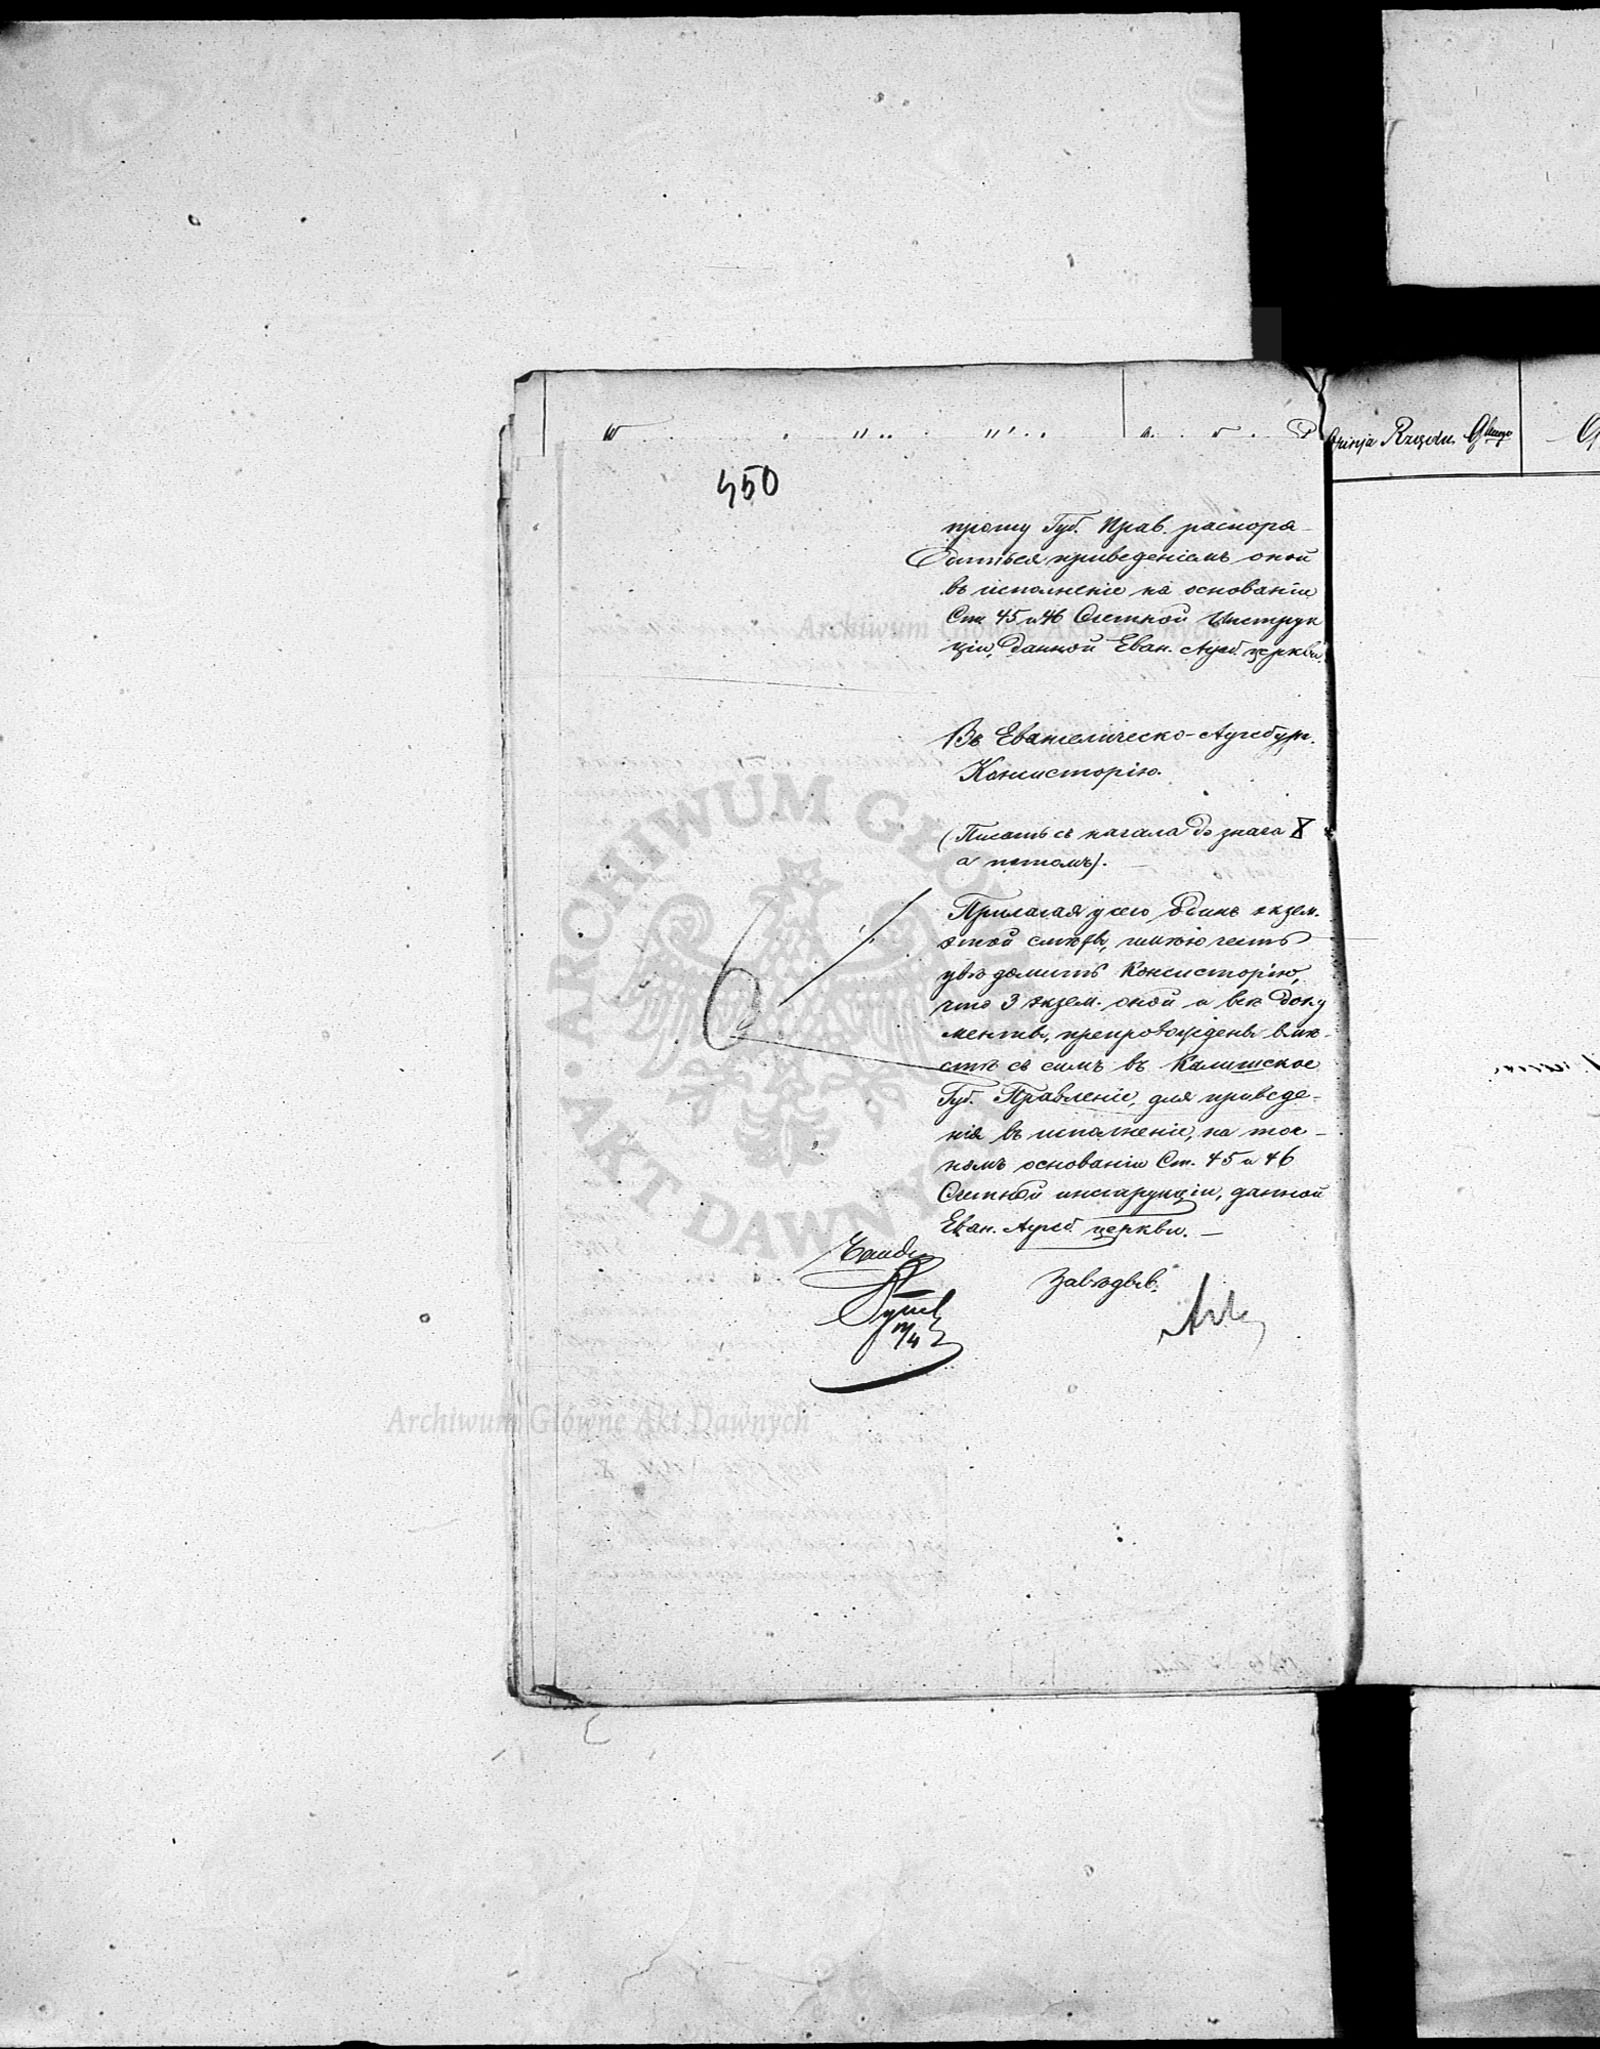 450
прошу Губ. Прав. распоря-
диться приведеніемъ оной
въ исполненіе на основаніи
Ст. 45 и 46 Счетной Инструк
ціи, данной Еван. Аугсб. церкви.
Въ Евангелическо-Аугсбург.
Консисторію.
(Писать съ начала до знака X
а потомъ).
Прилагая у сего одинъ экзем.
этой смѣты, имѣю честь
увѣдомить Консисторію,
что 3 экзем. оной и всѣ доку
менты, препровождены вмѣ-
стѣ съ симъ въ Калишское
Губ. Правленіе, для приведе-
нія въ исполненіе, на точ-
номъ основаніи Ст. 45 и 46
Счетной инструкціи, данной
Еван. Аугсб. церкви. —
Завѣдыв.
Rządu
Archiwum Główne Akt Dawnych
ARCHIWUM GŁÓWNE AKT DAWNYCH
Archiwum Główne Akt Dawnych